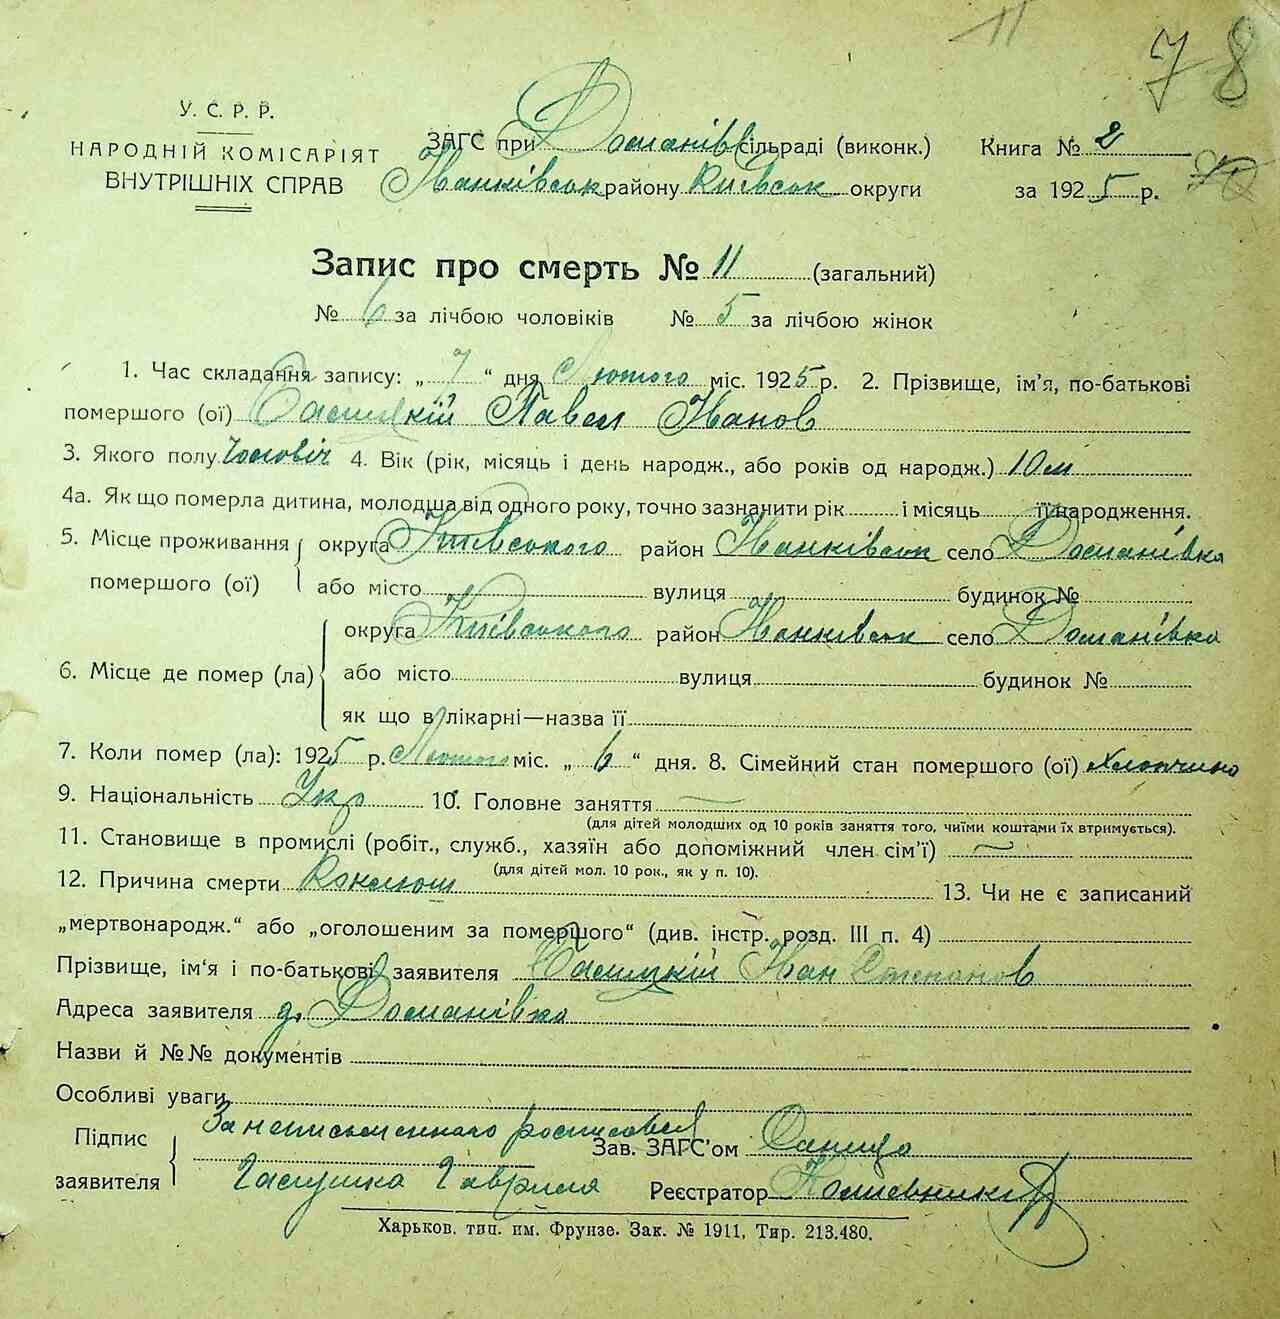 11
78
У. С. Р. Р.
НАРОДНІЙ КОМІСАРІЯТ
ВНУТРІШНІХ СПРАВ
ЗАГС при Доманівс сільраді (виконк.)
Іванківськ району Київськ округи
Книга № 2
за 1925 р.
Запис про смерть № 11 (загальний)
№ 6 за лічбою чоловіків № 5 за лічбою жінок
1. Час складання запису: „ 7 “ дня Лютого міс. 1925 р. 2. Прізвище, ім’я, по-батькові
помершого (ої) Павел Іванов
3. Якого полу Чоловіч 4. Вік (рік, місяць і день народж., або років од народж.) 10 м
4а. Як що померла дитина, молодша від одного року, точно зазначити рік і місяць її народження.
5. Місце проживання помершого (ої) округа Київського район Іванківськ село Доманівка
або місто вулиця будинок №
6. Місце де помер (ла) округа Київського район Іванківськ село Доманівка
або місто вулиця будинок №
як що в лікарні—назва її
7. Коли помер (ла): 1925 р. Лютого міс. „ 6 “ дня. 8. Сімейний стан помершого (ої) Хлопчина
9. Національність Укр 10. Головне заняття
(для дітей молодших од 10 років заняття того, чиїми коштами їх втримується).
11. Становище в промислі (робіт., служб., хазяїн або допоміжний член сім’ї)
(для дітей мол. 10 рок., як у п. 10).
12. Причина смерти Коклюш 13. Чи не є записаний
„мертвонародж.“ або „оголошеним за помершого“ (див. інстр. розд. III п. 4)
Прізвище, ім‘я і по-батькові заявителя Іван Степанов
Адреса заявителя д. Доманівка
Назви й №№ документів
Особливі уваги
Підпис заявителя За неписьменного росписовся
Гавриля
Зав. ЗАГС’ом
Реєстратор
Харьков. тип. им. Фрунзе. Зак. № 1911, Тир. 213.480.